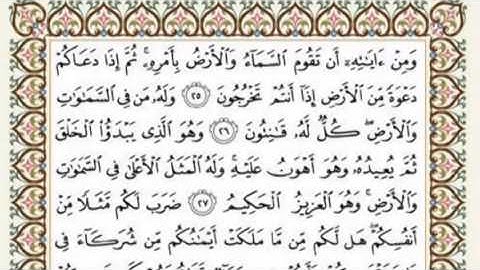 وَمِنْ ءَايَـٰتِهِۦٓ أَن تَقُومَ ٱلسَّمَآءُ وَٱلْأَرْضُ بِأَمْرِهِۦ ۚ ثُمَّ إِذَا دَعَاكُمْ
دَعْوَةً مِّنَ ٱلْأَرْضِ إِذَآ أَنتُمْ تَخْرُجُونَ ٢٥ وَلَهُۥ مَن فِى ٱلسَّمَـٰوَٰتِ
وَٱلْأَرْضِ ۖ كُلٌّ لَّهُۥ قَـٰنِتُونَ ٢٦ وَهُوَ ٱلَّذِى يَبْدَؤُا۟ ٱلْخَلْقَ
ثُمَّ يُعِيدُهُۥ وَهُوَ أَهْوَنُ عَلَيْهِ ۚ وَلَهُ ٱلْمَثَلُ ٱلْأَعْلَىٰ فِى ٱلسَّمَـٰوَٰتِ
وَٱلْأَرْضِ ۚ وَهُوَ ٱلْعَزِيزُ ٱلْحَكِيمُ ٢٧ ضَرَبَ لَكُم مَّثَلًا مِّنْ
أَنفُسِكُمْ ۖ هَل لَّكُم مِّن مَّا مَلَكَتْ أَيْمَـٰنُكُم مِّن شُرَكَآءَ فِى